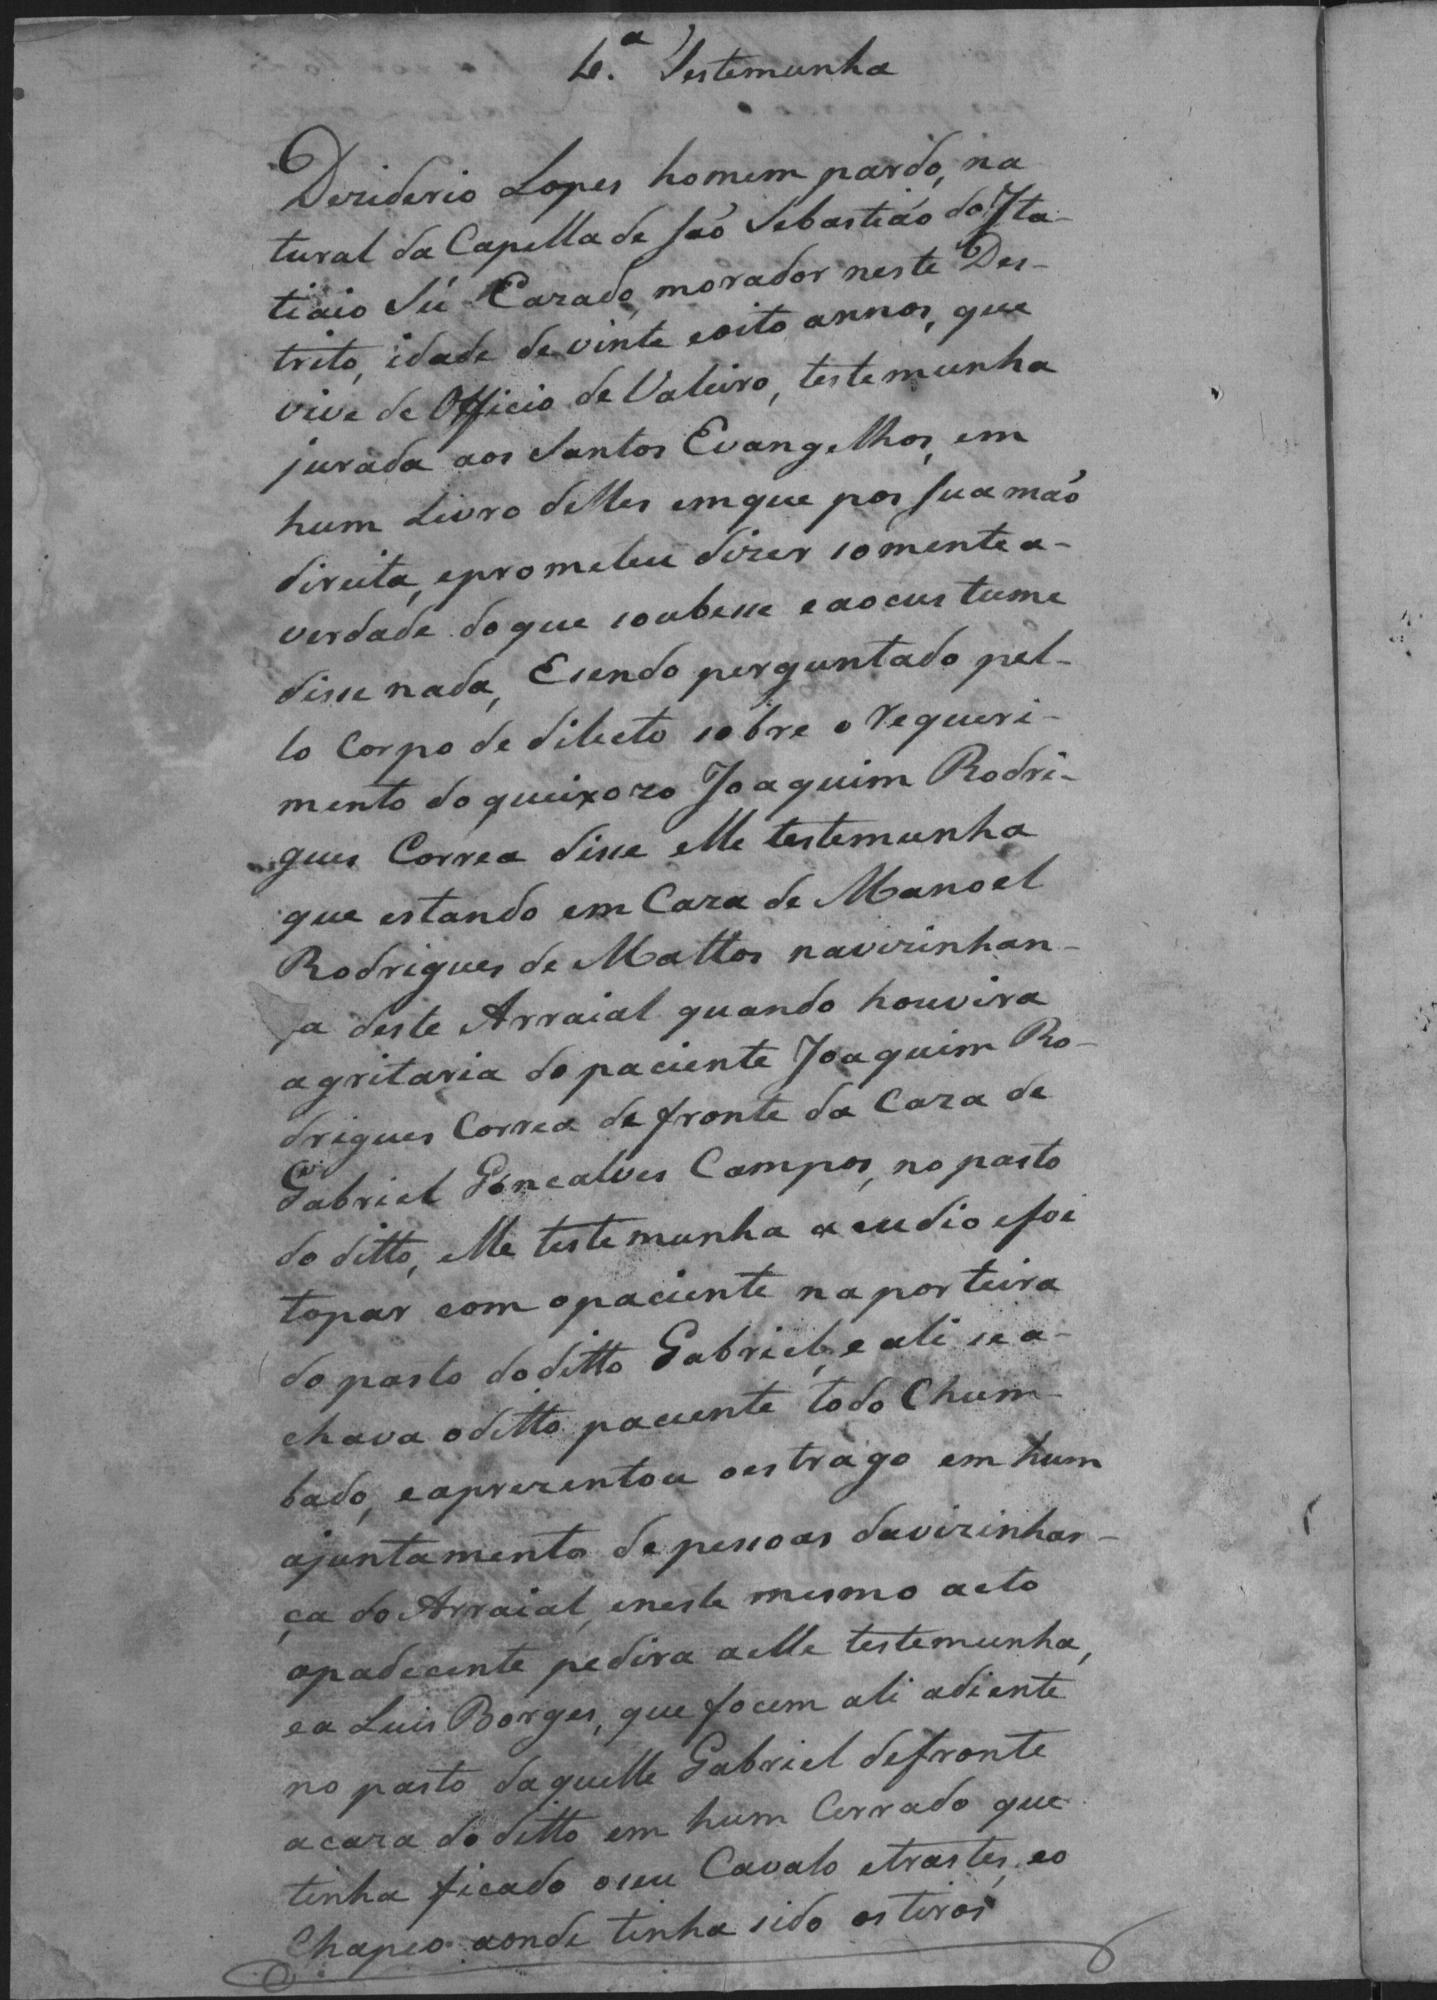 4.ª Testemunha
Deziderio Lopes homem pardo, na
tural da Capella de São Sebastião do Ita-
tiaio Sú Cazado, morador neste Des-
trito, idade de vinte eoito annos, que
vive de Officio de Valeiro, testemunha
jurada aos Santos Evangelhos, em
hum Livro delles emque pos sua mão
direita, eprometeu dizer somente a-
verdade doque soubesse eaocustume
disse nada, Esendo perguntado pel-
lo Corpo de dilicto sobre o requeri-
mento doqueixozo Joaquim Rodri-
gues Correa disse elle testemunha
que estando em Caza de Manoel
Rodrigues de Mattos navizinhan-
ça deste Arraial quando houvira
agritaria do paciente Joaquim Ro-
drigues Correa defronte da Caza de
Gabriel Goncalves Campos, no pasto
do ditto, elle testemunha acudio efoi
topar com opaciente naporteira
do pasto doditto Gabriel, e ali sea-
chava oditto paciente todo Chum-
bado, eaprezentou oestrago em hum
ajuntamento de pessoas davizinhan-
ça do Arraial, eneste mesmo acto
opadecente pedira aelle testemunha,
ea Luis Borges, que focem ali adiente
no pasto daquelle Gabriel defronte
acaza doditto em hum Cerrado que
tinha ficado oseu Cavalo etrastes, eo
Chapeo aonde tinha sido os tiros